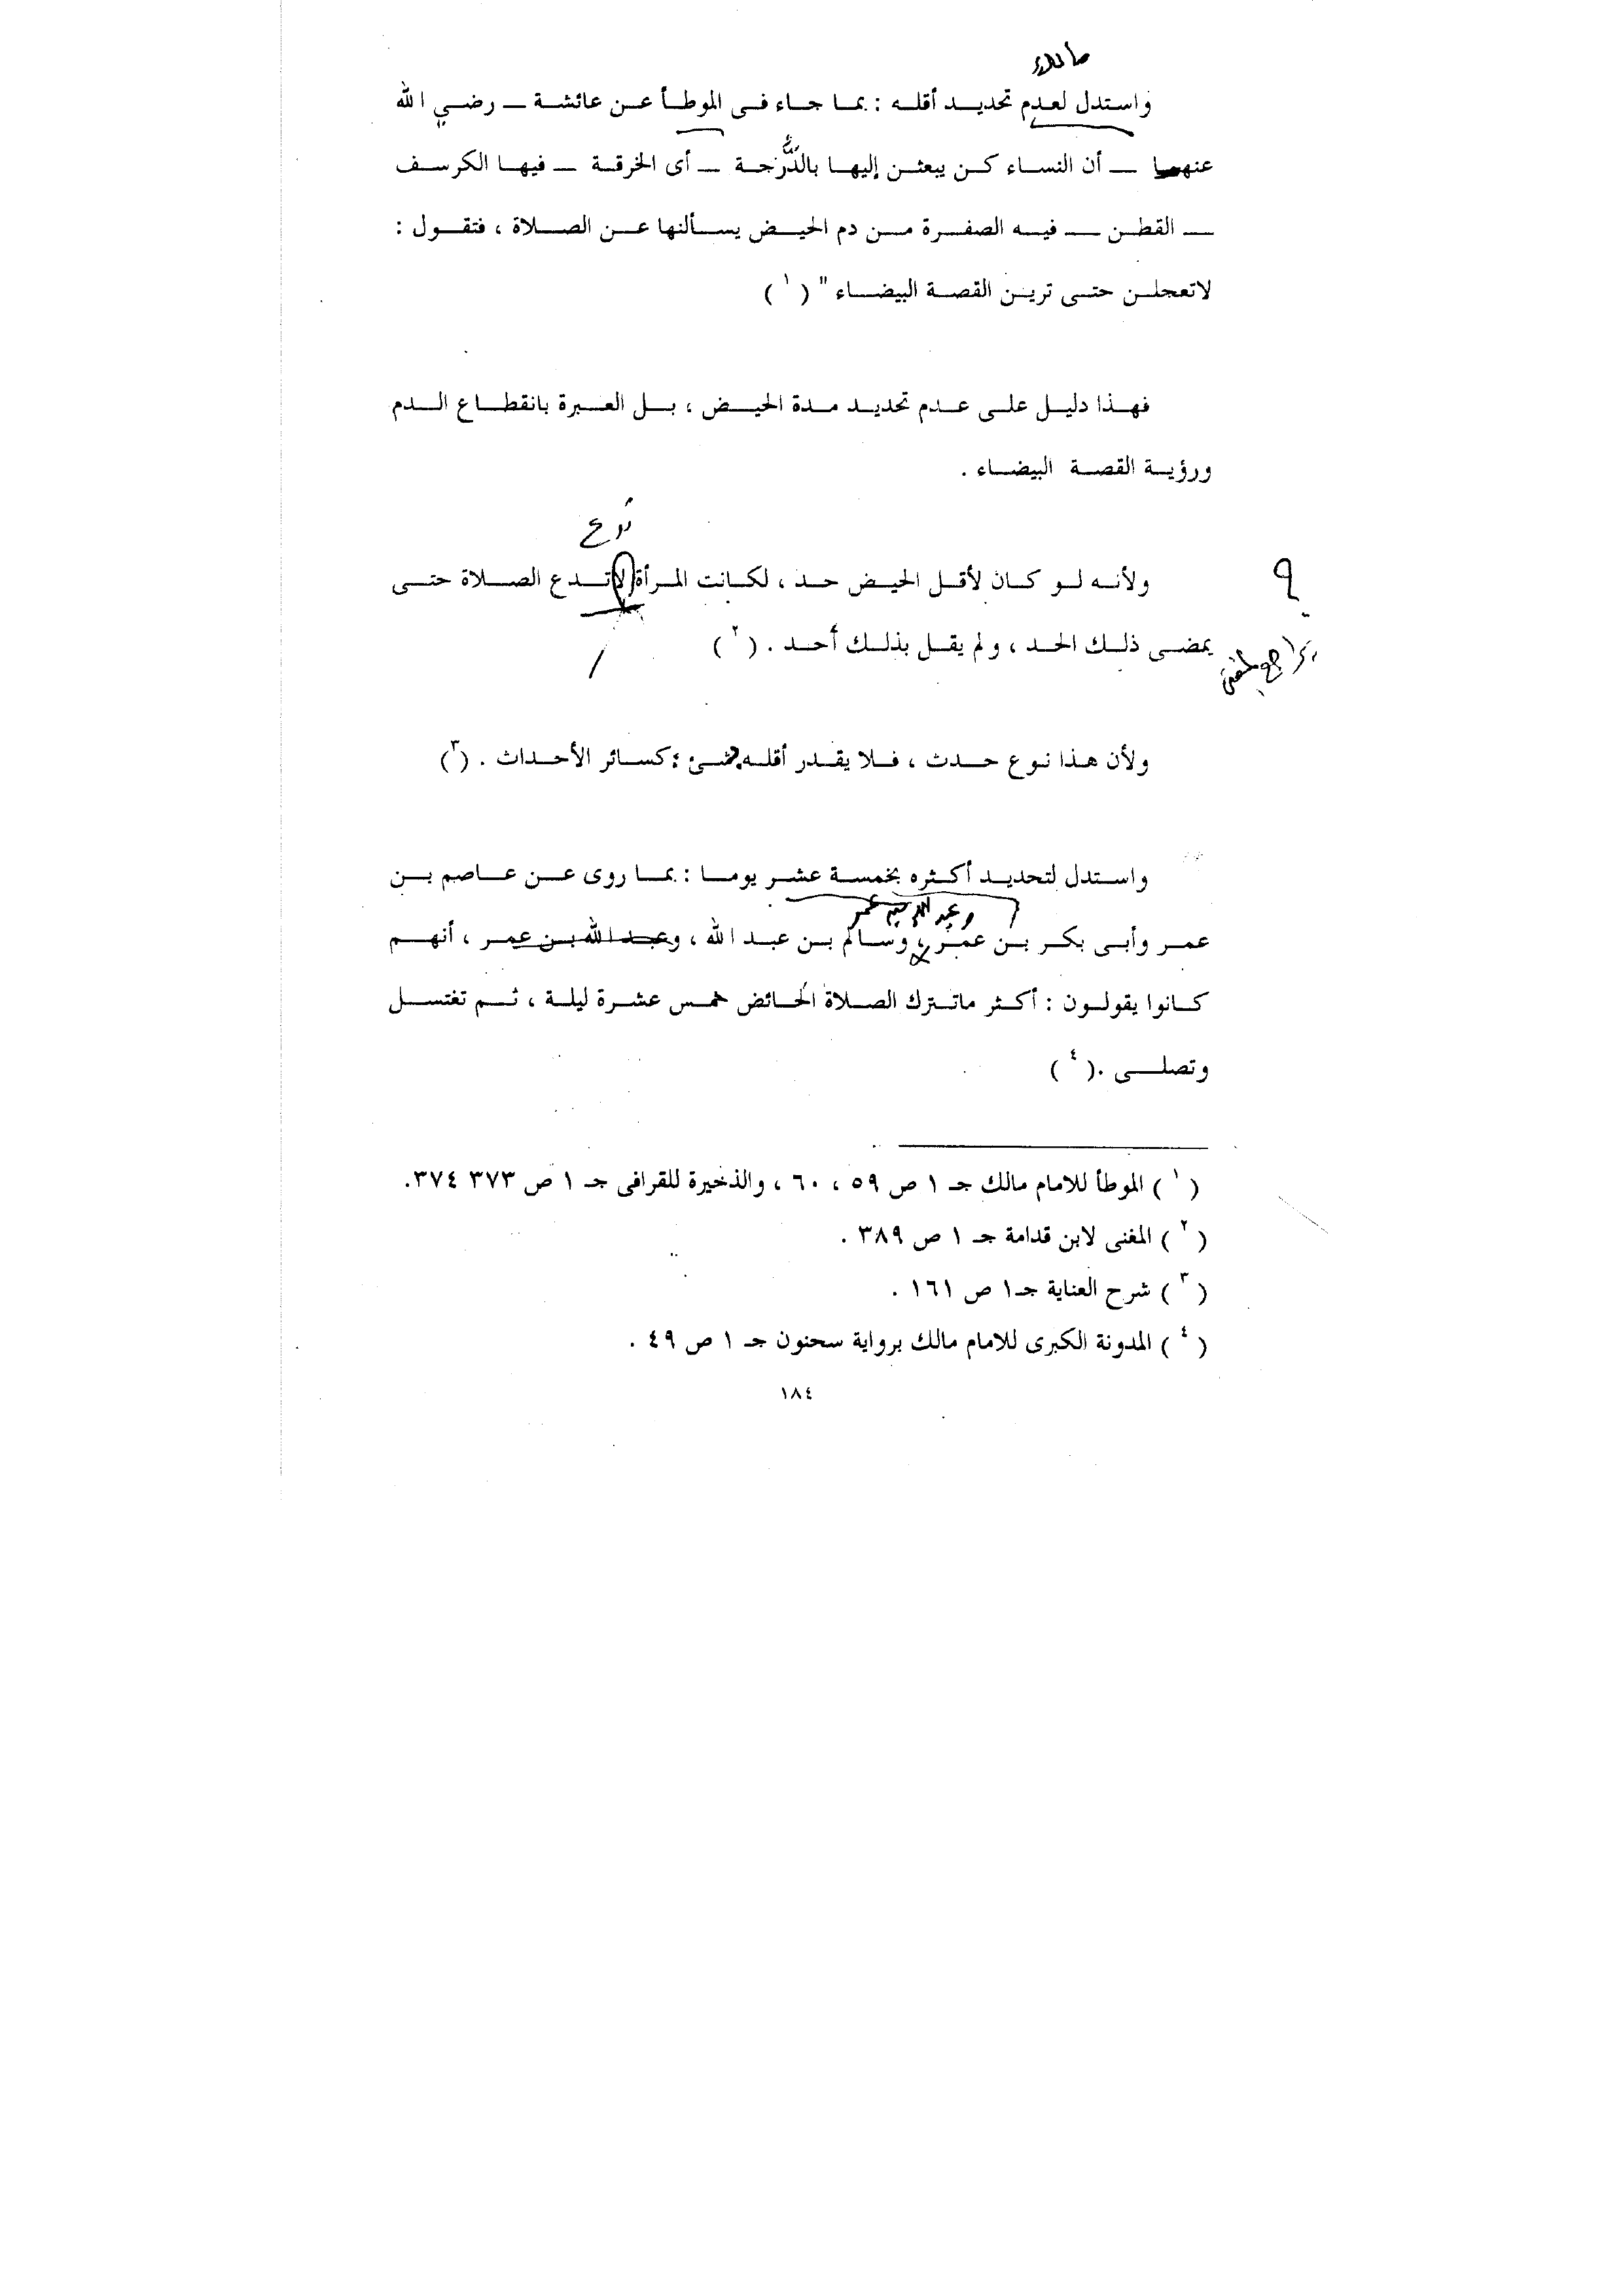 مالك
واستدل لعدم تحديد أقله : بما جاء فى الموطأ عن عائشة ــ رضي الله
عنها ــ أن النساء كن يبعثن إليها بالدُّرْجة ــ أى الخرقة ــ فيها الكرسف
ــ القطن ــ فيه الصفرة من دم الحيض يسألنها عن الصلاة ، فتقول :
لاتعجلن حتى ترين القصة البيضاء " (١)
فهذا دليل على عدم تحديد مدة الحيض ، بل العبرة بانقطاع الدم
ورؤية القصة البيضاء .
ولأنه لو كان لأقل الحيض حد ، لكانت المرأة لاتدع الصلاة حتى
يمضى ذلك الحد ، ولم يقل بذلك أحد . (٢)
يراجع المغنى
ولأن هذا نوع حدث ، فلا يقدر أقله بشئ ؛ كسائر الأحداث . (٣)
واستدل لتحديد أكثره بخمسة عشر يوما : بما روى عن عاصم بن
وعبد الله بن عمر
عمر وأبى بكر بن عمر ، وسالم بن عبد الله ، وعبد الله بن عمر ، أنهم
كانوا يقولون : أكثر ماتترك الصلاة الحائض خمس عشرة ليلة ، ثم تغتسل
وتصلى .(٤)
(١) الموطأ للامام مالك جـ ١ ص ٥٩ ، ٦٠ ، والذخيرة للقرافى جـ ١ ص ٣٧٣ ٣٧٤.
(٢) المغنى لابن قدامة جـ ١ ص ٣٨٩ .
(٣) شرح العناية جـ١ ص ١٦١ .
(٤) المدونة الكبرى للامام مالك برواية سحنون جـ ١ ص ٤٩ .
١٨٤